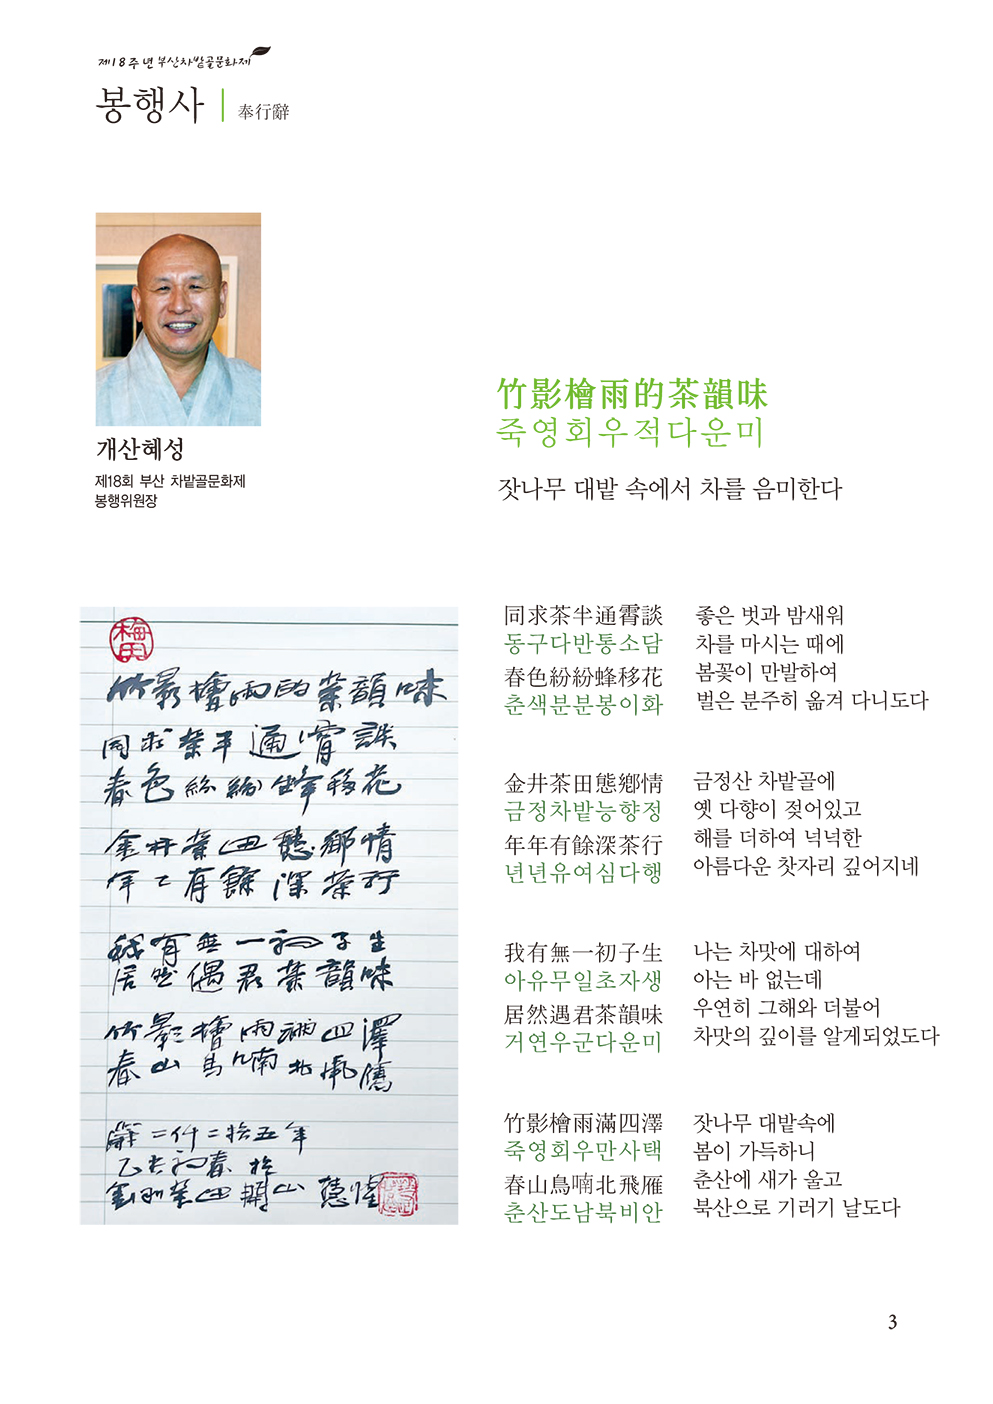 제18주년 부산차밭골문화제
봉행사 奉行辭
개산혜성
제18회 부산 차밭골문화제
봉행위원장
竹影檜雨的茶韻味
죽영회우적다운미
잣나무 대밭 속에서 차를 음미한다
竹影檜雨的茶韻味
同求茶半通霄談
春色紛紛蜂移花
金井茶田態鄕情
年々有餘深茶行
我有無一初子生
居然遇君茶韻味
竹影檜雨滿四澤
春山鳥喃北飛雁
辭二仟二拾五年
同求茶半通霄談
동구다반통소담
春色紛紛蜂移花
춘색분분봉이화
좋은 벗과 밤새워
차를 마시는 때에
봄꽃이 만발하여
벌은 분주히 옮겨 다니도다
金井茶田態鄕情
금정차밭능향정
年年有餘深茶行
년년유여심다행
금정산 차밭골에
옛 다향이 젖어있고
해를 더하여 넉넉한
아름다운 찻자리 깊어지네
我有無一初子生
아유무일초자생
居然遇君茶韻味
거연우군다운미
나는 차맛에 대하여
아는 바 없는데
우연히 그해와 더불어
차맛의 깊이를 알게되었도다
竹影檜雨滿四澤
죽영회우만사택
春山鳥喃北飛雁
춘산도남북비안
잣나무 대밭속에
봄이 가득하니
춘산에 새가 울고
북산으로 기러기 날도다
3